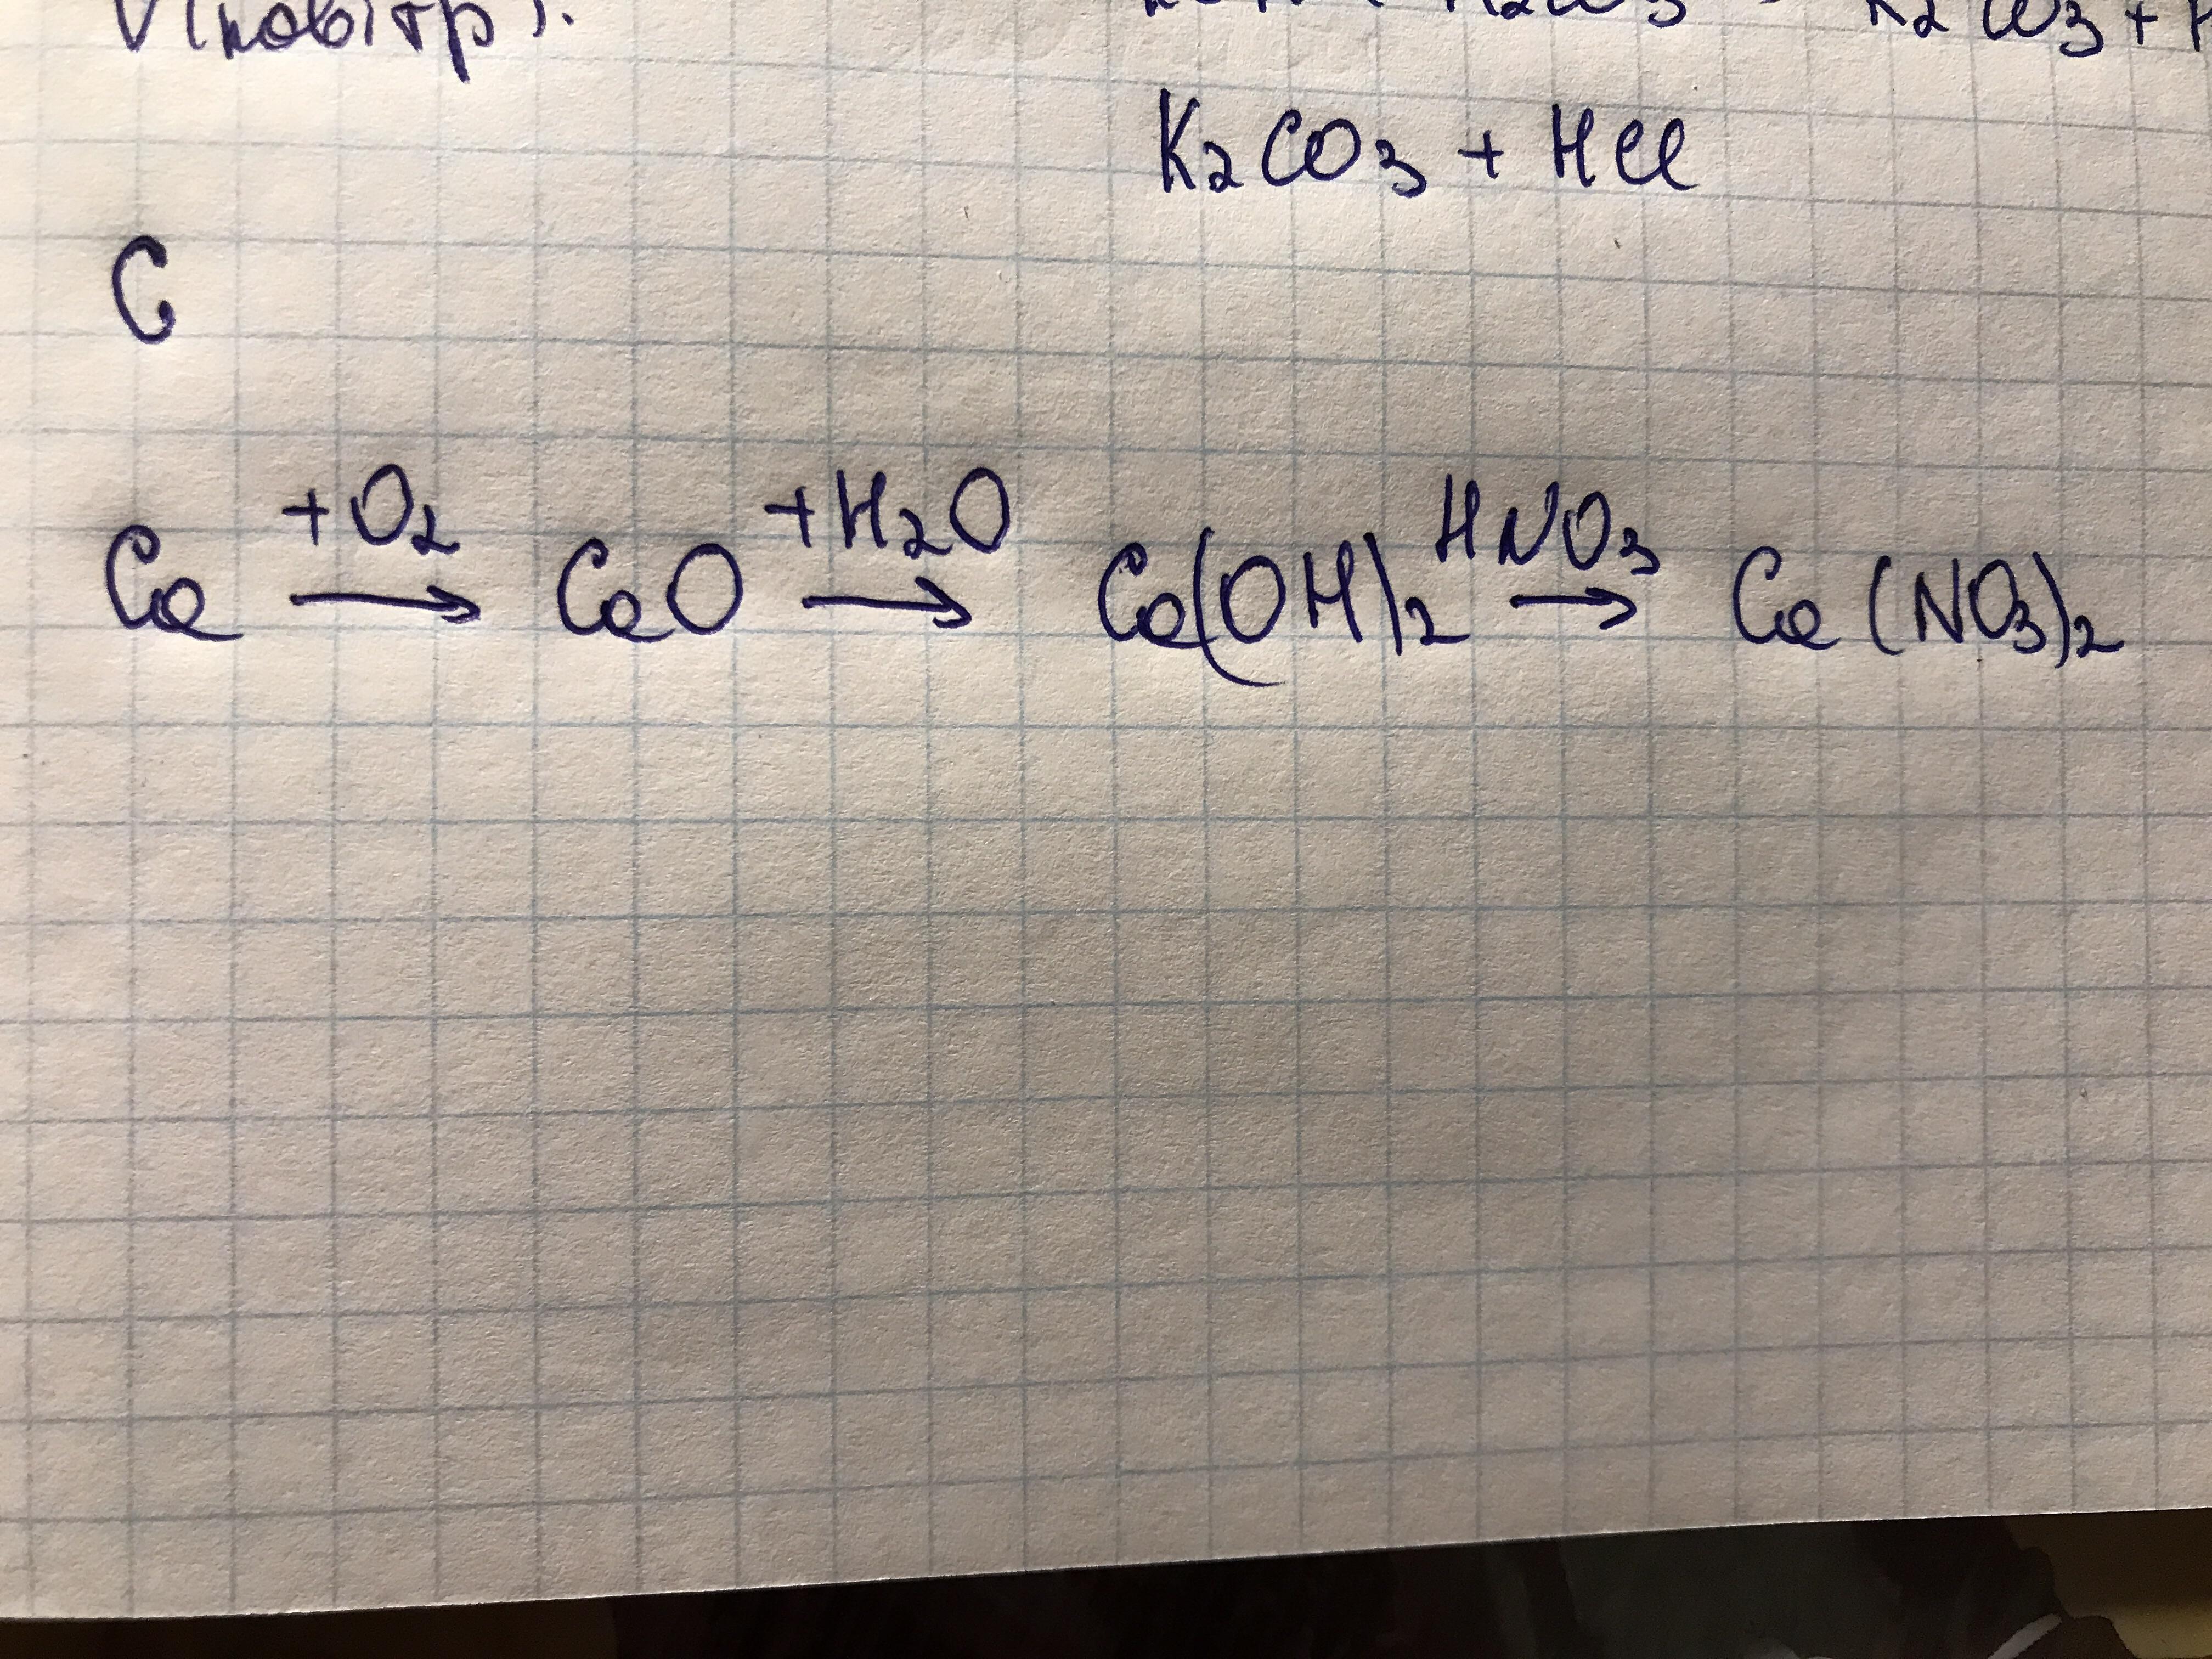 V(повітр).
K2CO3 + HCl
C
Ca +O2 → CaO +H2O → Ca(OH)2 HNO3 → Ca(NO3)2